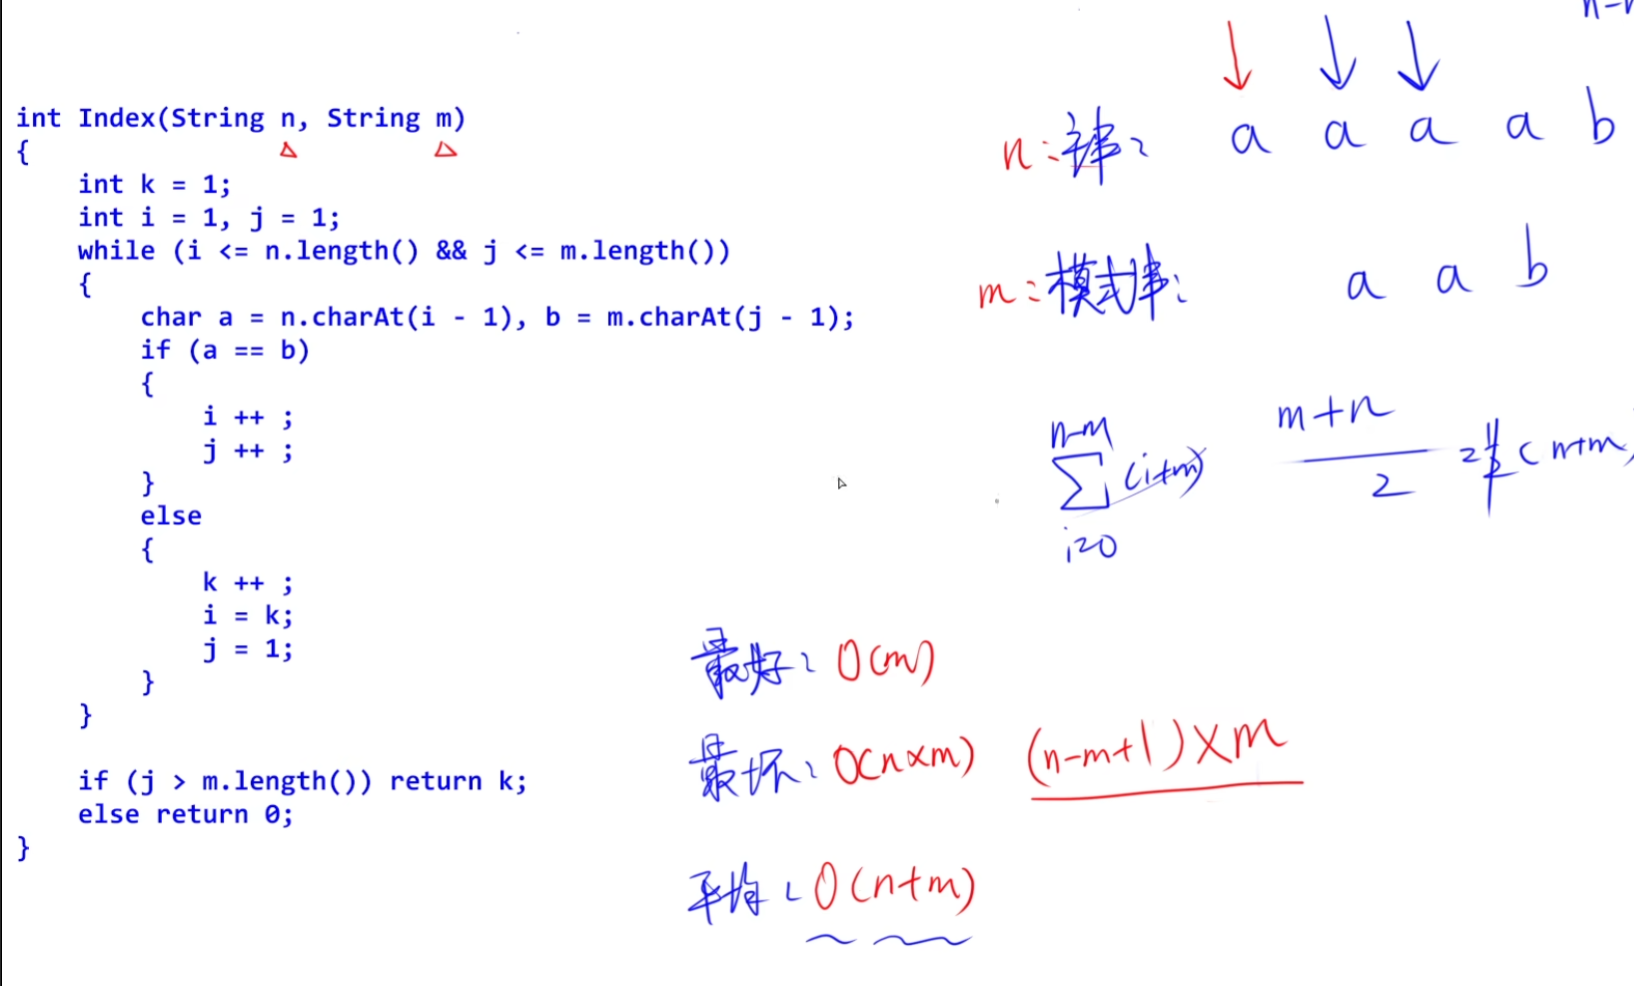 int Index(String n, String m)
{
    int k = 1;
    int i = 1, j = 1;
    while (i <= n.length() && j <= m.length())
    {
        char a = n.charAt(i - 1), b = m.charAt(j - 1);
        if (a == b)
        {
            i ++ ;
            j ++ ;
        }
        else
        {
            k ++ ;
            i = k;
            j = 1;
        }
    }
    if (j > m.length()) return k;
    else return 0;
}
n:主串: a a a a b
m:模式串: a a b
n-m
∑ (i+m)
i=0
m+n
2
最好: O(m)
最坏: O(n×m) (n-m+1)×m
平均: O(n+m)